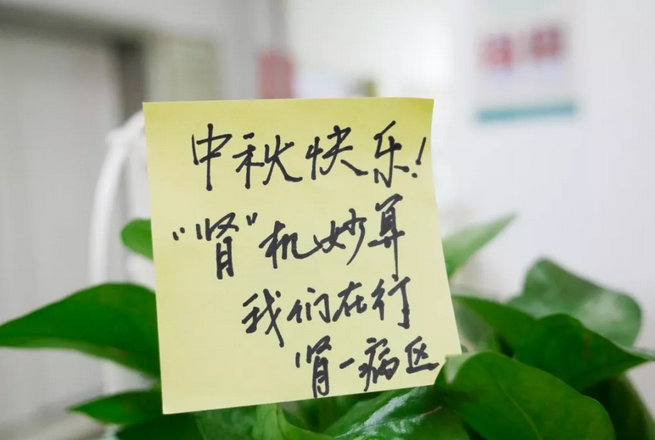 中秋快乐!
"肾"机妙算
我们在行
肾一病区